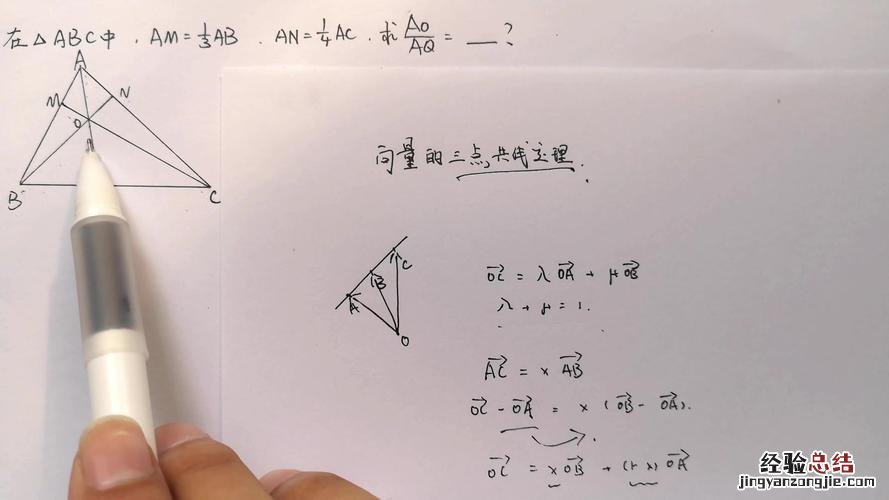 在△ABC中,AM=⅓AB,AN=¼AC,求AO/AQ=__?
A
M
N
O
B
C
向量的三点共线定理.
C
B
A
O
OC→ = λOA→ + μOB→
λ+μ=1.
AC→ = xAB→
OC→ - OA→ = x(OB→ - OA→).
OC→ = xOB→ + (1-x)OA→
经验总结
jingyanzongjie.com